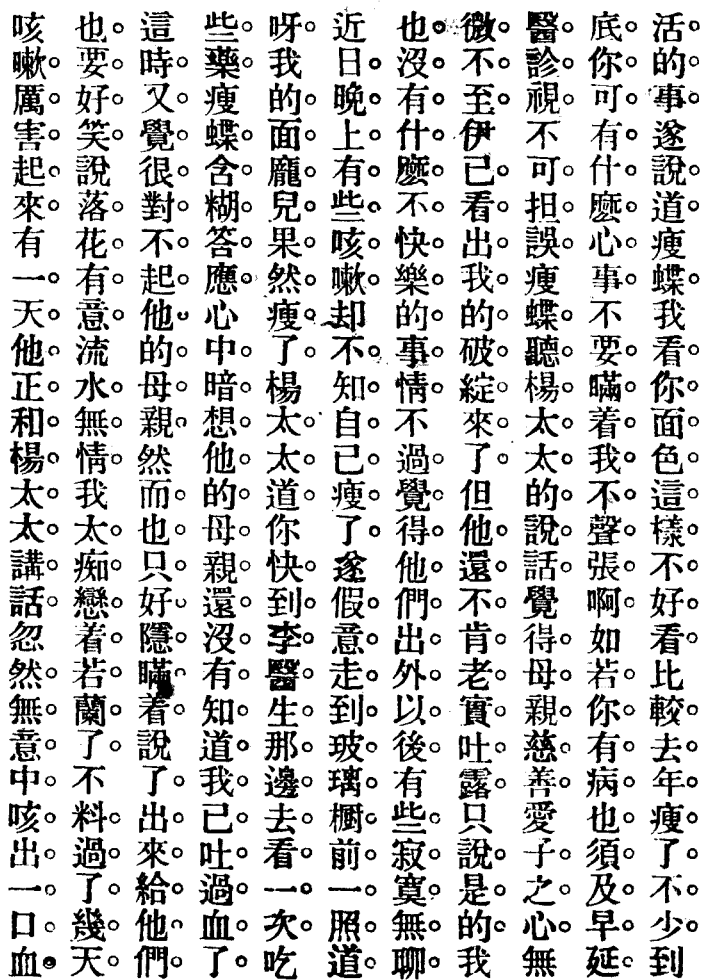 活的事遂說道瘦蝶我看你面色這樣不好看比較去年瘦了不少到
底你可有什麽心事不要瞞着我不聲張啊如若你有病也須及早延
醫診視不可担誤瘦蝶聽楊太太的說話覺得母親慈善愛子之心無
微不至伊已看出我的破綻來了但他還不肯老實吐露只說是的我
也沒有什麽不快樂的事情不過覺得他們出外以後有些寂寞無聊
近日晚上有些咳嗽却不知自己瘦了遂假意走到玻璃櫥前一照道
呀我的面龐兒果然瘦了楊太太道你快到李醫生那邊去看一次吃
些藥瘦蝶含糊答應心中暗想他的母親還沒有知道我已吐過血了
這時又覺很對不起他的母親然而也只好隱瞞着說了出來給他們
也要好笑說落花有意流水無情我太痴戀着若蘭了不料過了幾天
咳嗽厲害起來有一天他正和楊太太講話忽然無意中咳出一口血